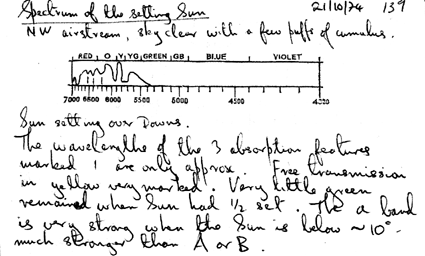 Spectrum of the setting Sun 21/10/74 139
NW airstream, sky clear with a few puffs of cumulus.
RED O Y YG GREEN GB BLUE VIOLET
7000 6500 6000 5500 5000 4500 4000
Sun setting over Downs.
The wavelengths of the 3 absorption features
marked ↑ are only approx. Free transmission
in yellow very marked. Very little green
remained when Sun had 1/2 set. The a band
is very strong when the Sun is below ~ 10° -
much stronger than A or B.